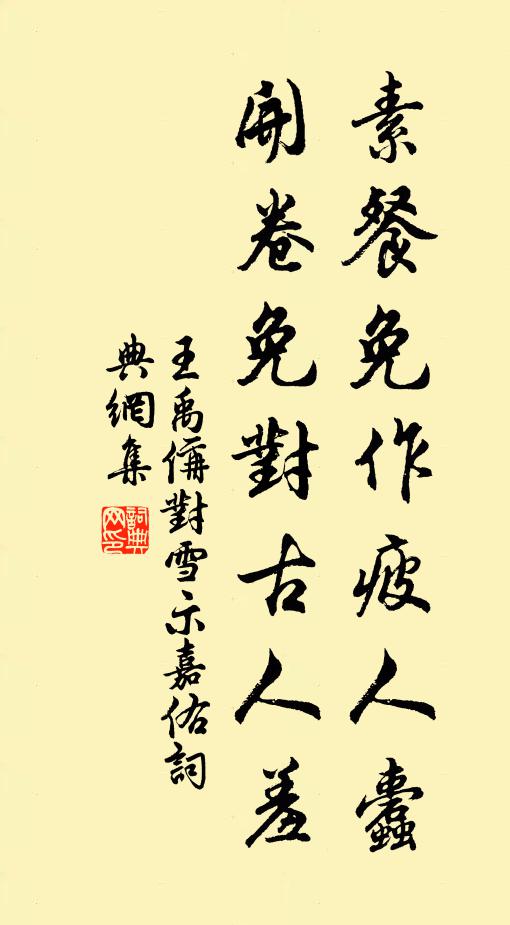 素餐免作疲人蠹
開卷免對古人羞
王禹偁對雪示嘉佑詞
典網集
詞典網印